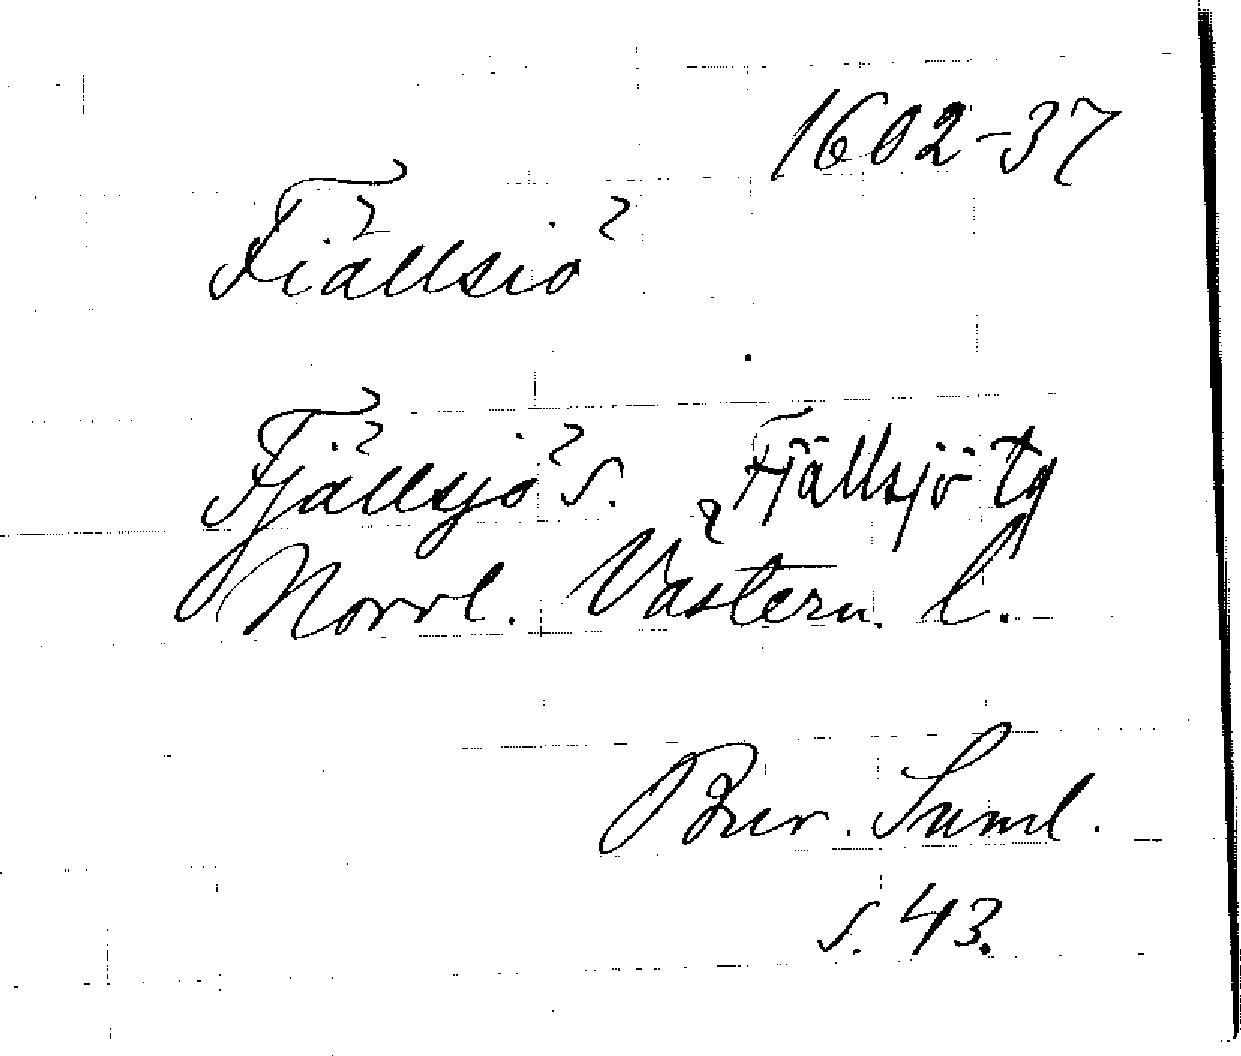 1602-37
Fiällsiö
Fjällsjö s. Fjällsjö tg
Norrl. Västern. l.
Bur. Saml.
s. 43.